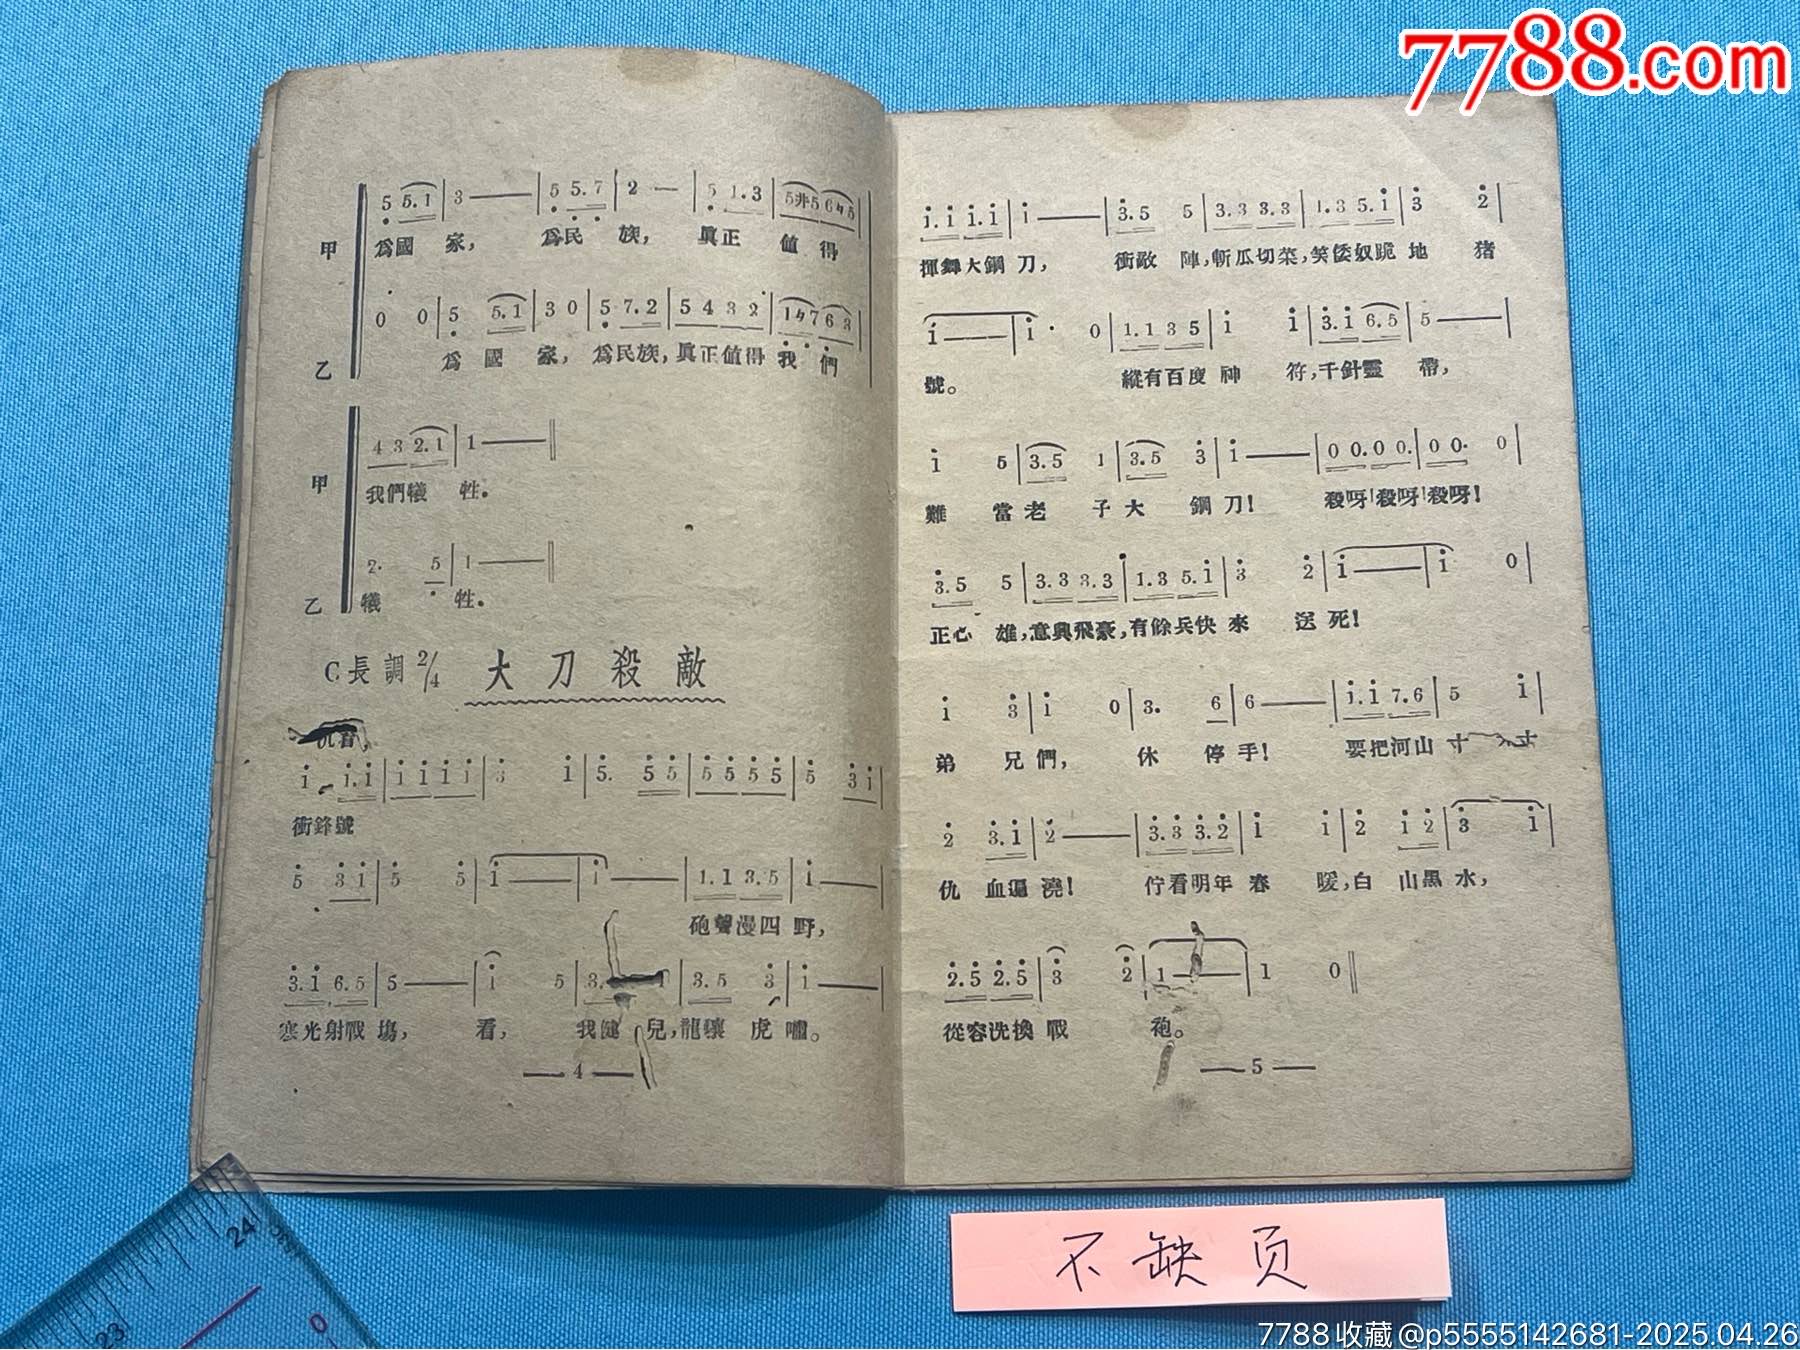 7788.com
5 5.1 | 3 — | 5 5.7 | 2 — | 5 1.3 |
甲 爲國 家， 爲民 族， 眞正 値 得
0 0 | 5 5.1 | 3 0 | 5 7.2 | 5 4 3 2 |
乙 爲 國 家，爲民族，眞正値得 我 們
4 3 2.1 | 1 — ‖
甲 我們犧 牲。
2· 5 | 1 — ‖
乙 犧 牲。
C長調 2/4 大刀殺敵
i i.i | i i i i | 3 i | 5. 5 5 | 5 5 5 5 | 5 3 i |
衝鋒號
5 3 i | 5 5 | i — | i — | 1.1 3.5 | i — |
砲聲漫四 野，
3.i 6.5 | 5 — | i 5 | 3. | 3.5 3 | i — |
寒光射戰 場， 看， 我健 兒，龍驤 虎 嘯。
— 4 —
i.i i.i | i — | 3.5 5 | 3.3 3.3 | 1.3 5.i | 3 2 |
揮舞大鋼 刀， 衝敵 陣，斬瓜切菜，笑倭奴跪 地 猪
i — | i · 0 | 1.1 3 5 | i i | 3.i 6.5 | 5 — |
號。 縱有百度 神 符，千針靈 帶，
i 5 | 3.5 1 | 3.5 3 | i — | 0 0. 0 0. | 0 0. 0 |
難 當 老 子 大 鋼 刀！ 殺呀！殺呀！殺呀！
3.5 5 | 3.3 3.3 | 1.3 5.i | 3 2 | i — | i 0 |
正心 雄，意興飛豪，有餘兵快 來 送 死！
i 3 | i 0 | 3. 6 | 6 — | i.i 7.6 | 5 i |
弟 兄 們， 休 停 手！ 要把河山 寸 寸
2 3.i | 2 — | 3.3 3.2 | i i | 2 i 2 | 3 i |
仇 血遍 澆！ 佇看明年 春 暖，白 山黑 水，
2.5 2.5 | 3 2 | 1 — | 1 0 ‖
從容洗換 戰 袍。
— 5 —
不缺页
24
23
0
7788收藏@p5555142681-2025.04.26